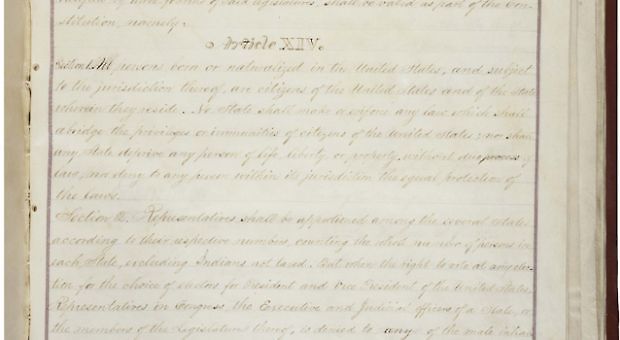 ratified by three fourths of said legislatures, shall be valid as part of the Con-
stitution, namely:
Article XIV.
Section 1. All persons born or naturalized in the United States, and subject
to the jurisdiction thereof, are citizens of the United States and of the State
wherein they reside. No State shall make or enforce any law which shall
abridge the privileges or immunities of citizens of the United States; nor shall
any State deprive any person of life, liberty, or property, without due process of
law, nor deny to any person within its jurisdiction the equal protection of
the laws.
Section 2. Representatives shall be apportioned among the several States
according to their respective numbers, counting the whole number of persons in
each State, excluding Indians not taxed. But when the right to vote at any elec-
tion for the choice of electors for President and Vice President of the United States,
Representatives in Congress, the Executive and Judicial officers of a State, or
the members of the Legislature thereof, is denied to any of the male inhab